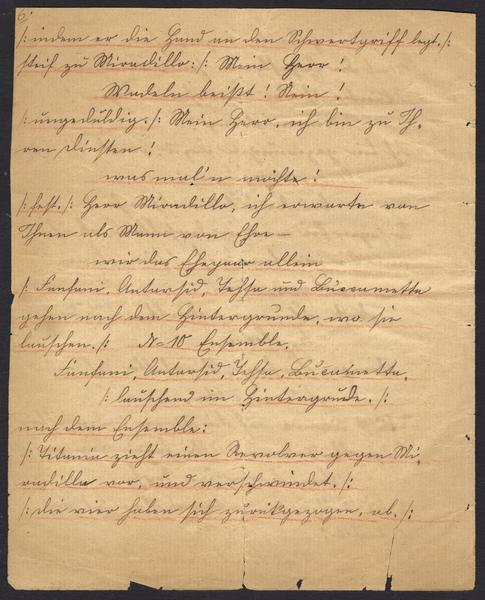 6.
/: indem er die Hand an den Schwertgriff legt. :/
steif zu Miradillo: /: Mein Herr!
Wadeln beißt! Nein!
/: ungeduldig. /: Mein Herr, ich bin zu Ih-
ren Diensten!
was mal'n möchte!
/: fest. /: Herr Miradillo, ich erwarte von
Ihnen als Mann von Ehre —
wir das Ehepaar allein
/: Fanfani, Antarsid, Tessa und Bucametta
gehen nach dem Hintergrunde, wo sie
lauschen. /: N= 10 Ensemble.
Fanfani, Antarsid, Tessa, Bucametta,
/: lauschend im Hintergrunde. /:
nach dem Ensemble:
/: Titania zieht einen Revolver gegen Mi-
radillo vor, und verschwindet. /:
/: die vier haben sich zurückgezogen, ab. /: